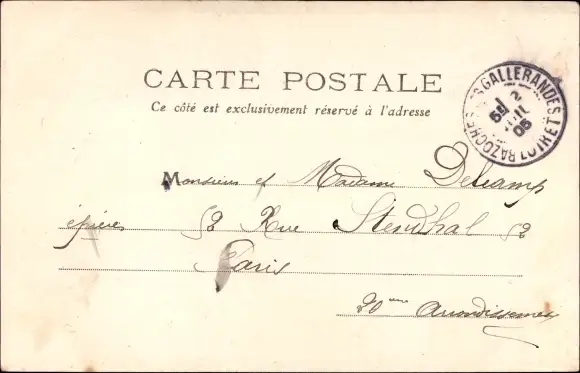 CARTE POSTALE
Ce côté est exclusivement réservé à l'adresse
BAZOCHES-LES-GALLERANDES LOIRET
2
05
Monsieur et Madame Delcamp
épiciers 52 Rue Stendhal 52
Paris
20eme Arrondissement